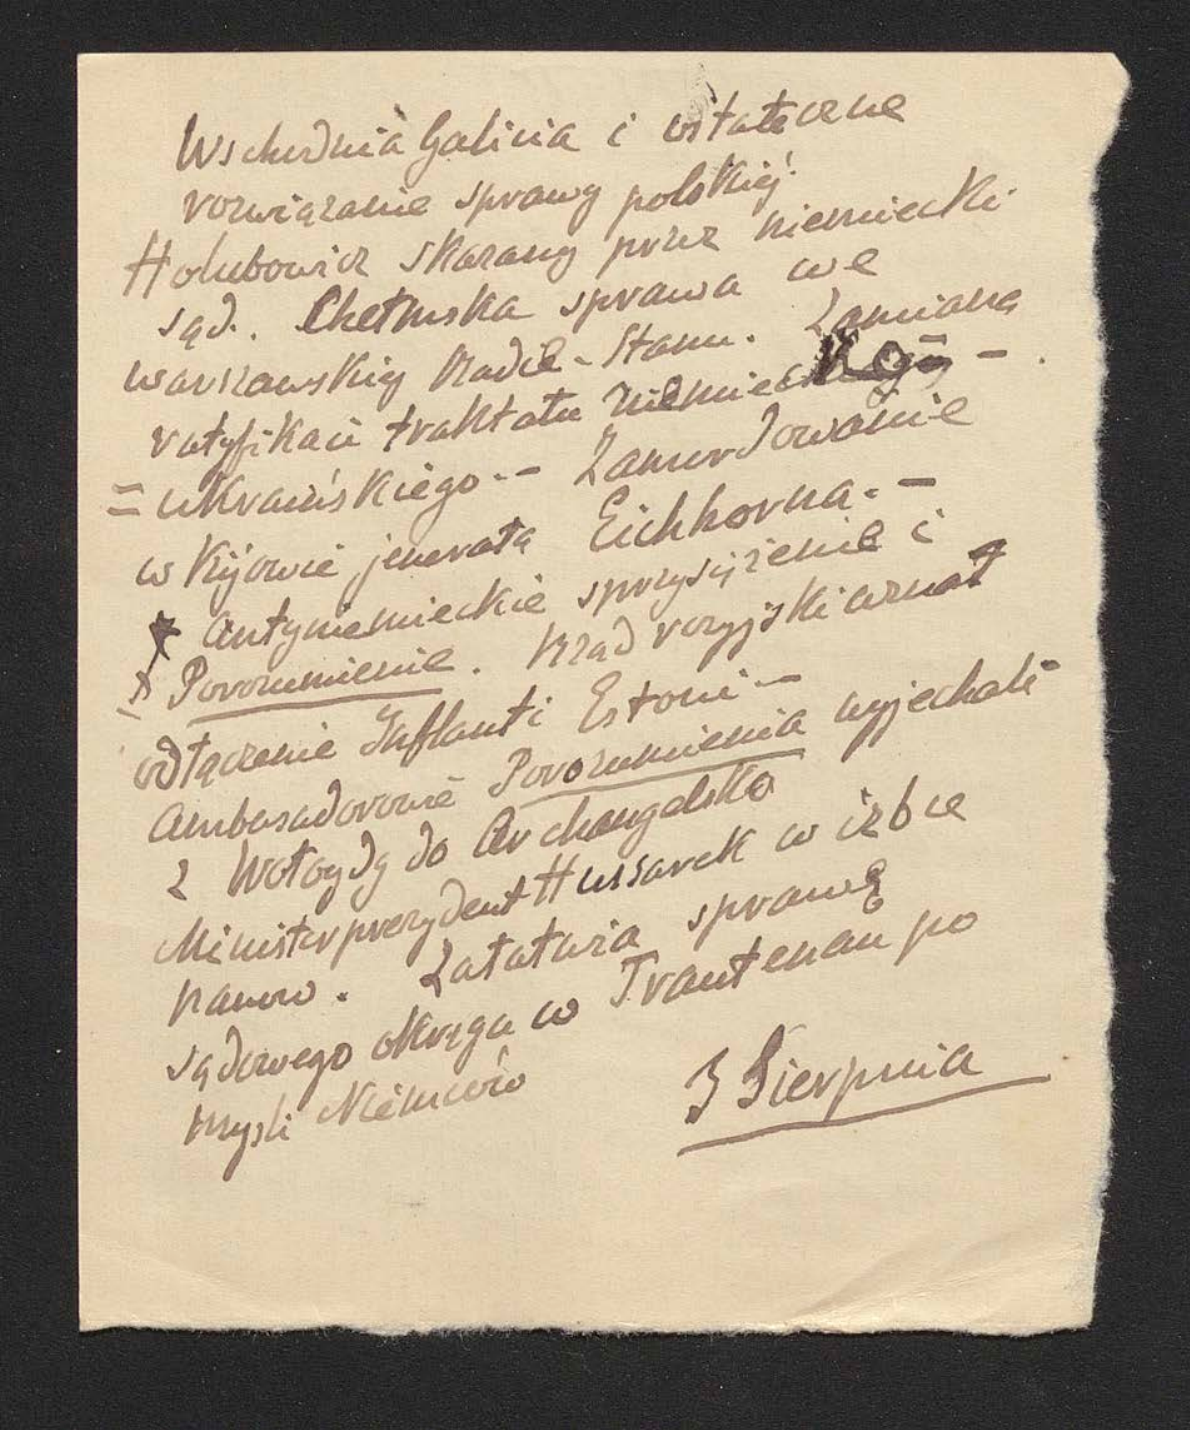 Wschodnia Galicia i ostateczne
rozwiązanie sprawy polskiéj.
Hołubowicz skazany przez niemiecki
sąd. Chełmska sprawa we
warszawskiej Radie-Stanu. Zamiana
ratyfikacii traktatu niemiecko-
=ukraińskiego.-- Zamordowanie
w Kijowie jenerała Eichhorna.-
antyniemieckie sprzysiężenie i
Porozumienie. Rząd rozyjski uznał
odłączenie Inflant i Estoni-
Ambasadorowie Porozumienia wyjechali
z Wołogdy do Archangelska
Ministerprezydent Hussarek w izbie
Panow. Załatwia sprawę
sądowego okręga w Trautenau po
mysli Niemców
3 Sierpnia